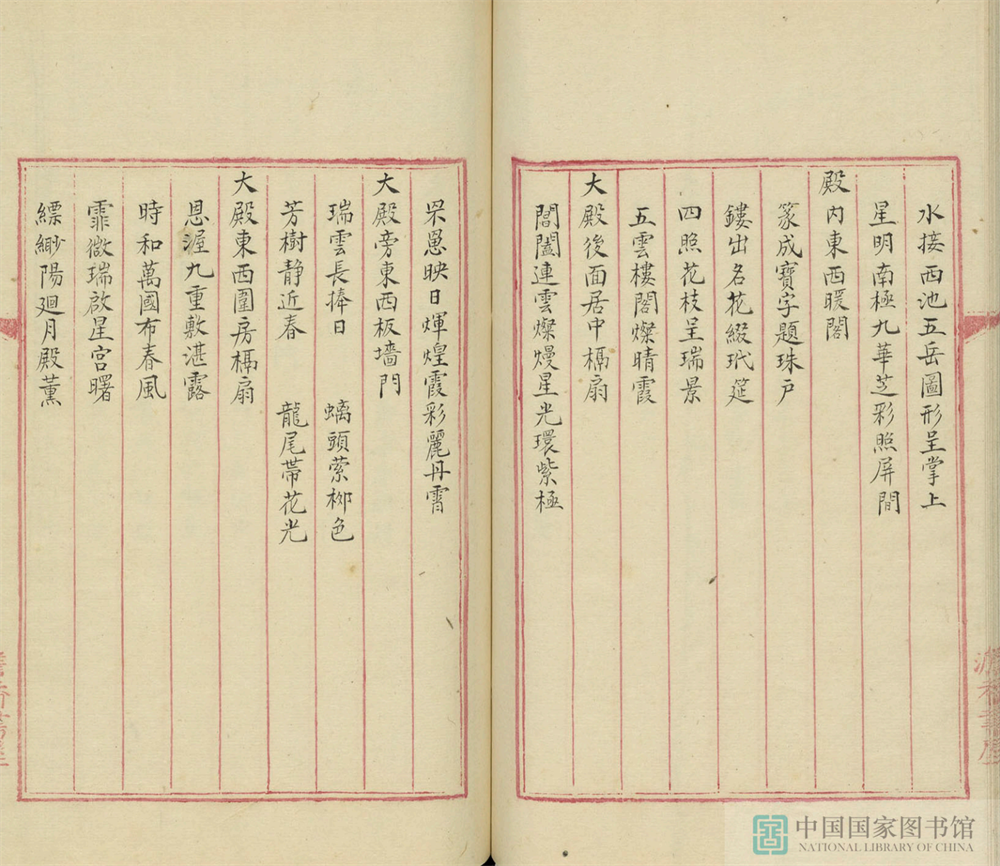 水接西池五岳圖形呈掌上
星明南極九華芝彩照屏間
殿内東西暖閣
篆成寶字題珠户
鏤出名花綴玳筵
四照花枝呈瑞景
五雲樓閣燦晴霞
大殿後面居中槅扇
閶闔連雲燦熳星光環紫極
罘罳映日煇煌霞彩麗丹霄
大殿旁東西板墻門
瑞雲長捧日 螭頭縈柳色
芳樹静近春 龍尾帶花光
大殿東西圍房槅扇
恩渥九重敷湛露
時和萬國布春風
霏微瑞啟星宫曙
縹緲陽迴月殿薰
中国国家图书馆
NATIONAL LIBRARY OF CHINA